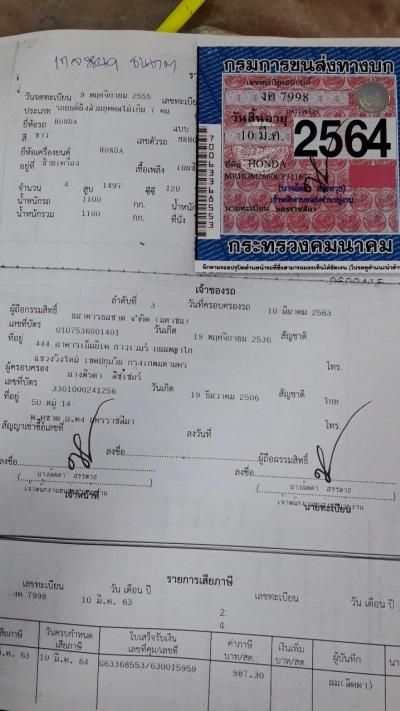 กรมการขนส่งทางบก
เลขทะเบียนรถยนต์
งค 7998
วันสิ้นอายุ
10 มี.ค. 2564
ยี่ห้อ HONDA
นายทะเบียน นครราชสีมา
กระทรวงคมนาคม
วันจดทะเบียน 9 พฤศจิกายน 2555 เลขทะเบียน
ประเภท รถยนต์นั่งส่วนบุคคลไม่เกิน 7 คน
ยี่ห้อรถ HONDA แบบ
สี ขาว เลขตัวรถ
ยี่ห้อเครื่องยนต์ HONDA
อยู่ที่ ซ้ายเครื่อง เชื้อเพลิง
จำนวน 4 สูบ 1497 ซีซี 120
น้ำหนักรถ 1100 กก.
น้ำหนักรวม 1100 กก. ที่นั่ง
เจ้าของรถ
ลำดับที่ 3 วันที่ครอบครองรถ 10 มีนาคม 2563
ผู้ถือกรรมสิทธิ์ ธนาคารธนชาต จำกัด (มหาชน)
เลขที่บัตร 0107536001401 วันเกิด 19 พฤศจิกายน 2536 สัญชาติ
ที่อยู่ 444 อาคารเอ็มบีเค ทาวเวอร์ ถนนพญาไท
แขวงวังใหม่ เขตปทุมวัน กรุงเทพมหานคร โทร.
ผู้ครอบครอง
เลขที่บัตร 3301000241256 วันเกิด 19 ธันวาคม 2506 สัญชาติ ไทย
ที่อยู่ 50 หมู่ 14
โทร.
สัญญาเช่าซื้อเลขที่ ลงวันที่
ลงชื่อ ผู้ถือกรรมสิทธิ์
ลงชื่อ
เจ้าหน้าที่ นายทะเบียน
รายการเสียภาษี
เลขทะเบียน วัน เดือน ปี เลขทะเบียน วัน เดือน ปี
งค 7998 10 มี.ค. 63 2.
4.
เสียภาษี วันครบกำหนดเสียภาษี ใบเสร็จรับเงิน เล่มที่/เลขที่ ค่าภาษี บาท/สต. เงินเพิ่ม บาท/สต. ผู้บันทึก
มี.ค. 63 10 มี.ค. 64 G63368553/630015959 987.30